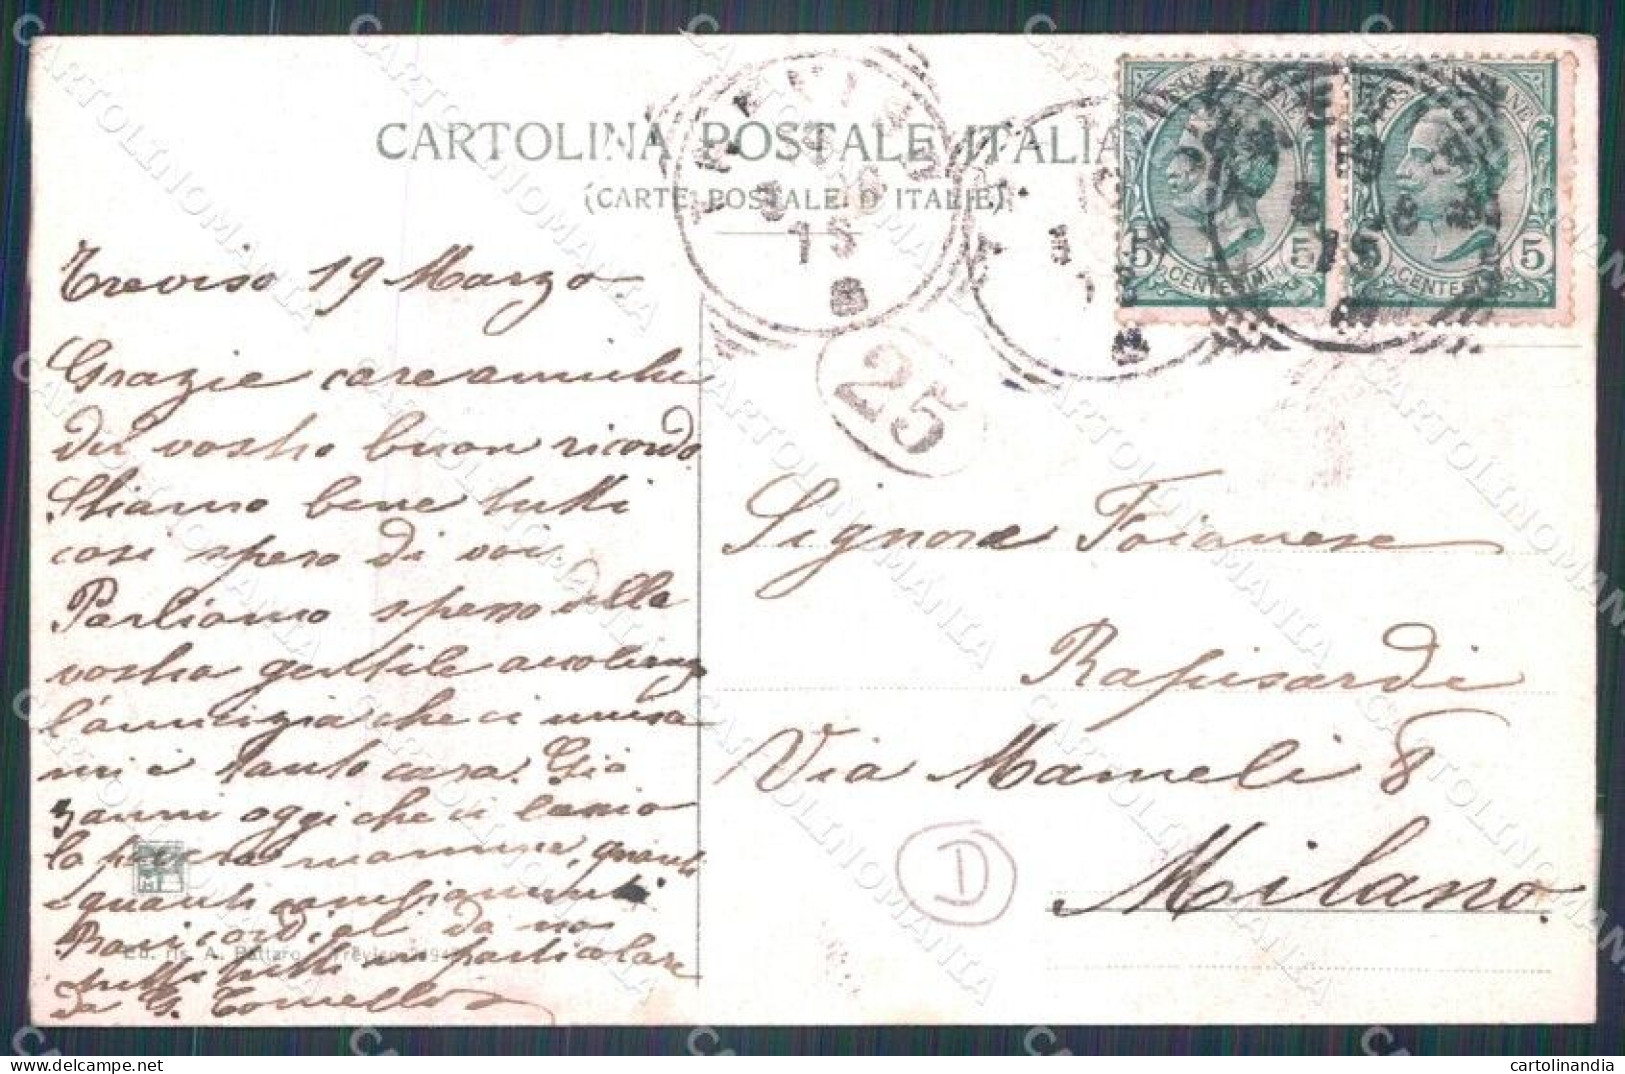 CARTOLINA POSTALE ITALIA
(CARTE POSTALE D'ITALIE)
TREVISO
25
POSTE ITALIANE
5 CENTESIMI 5
5 CENTESIMI 5
Treviso 19 Marzo
Grazie care amiche
del vostro buon ricordo
Stiamo bene tutti
così spero di voi.
Parliamo spesso della
vostra gentile accoglienza
l'amicizia che ci unisce
mi è tanto cara. Già
3 anni oggi che ci lasciò
la povera mamma, quanti
quanti cambiamenti
Baci cordiali da noi
tutti tutti in particolare
da G. Tomello
Ed. ris. A. Battaro - Treviso
Signore Foianese
Rapisardi
Via Mameli 8
Milano.
D
cartolinandia